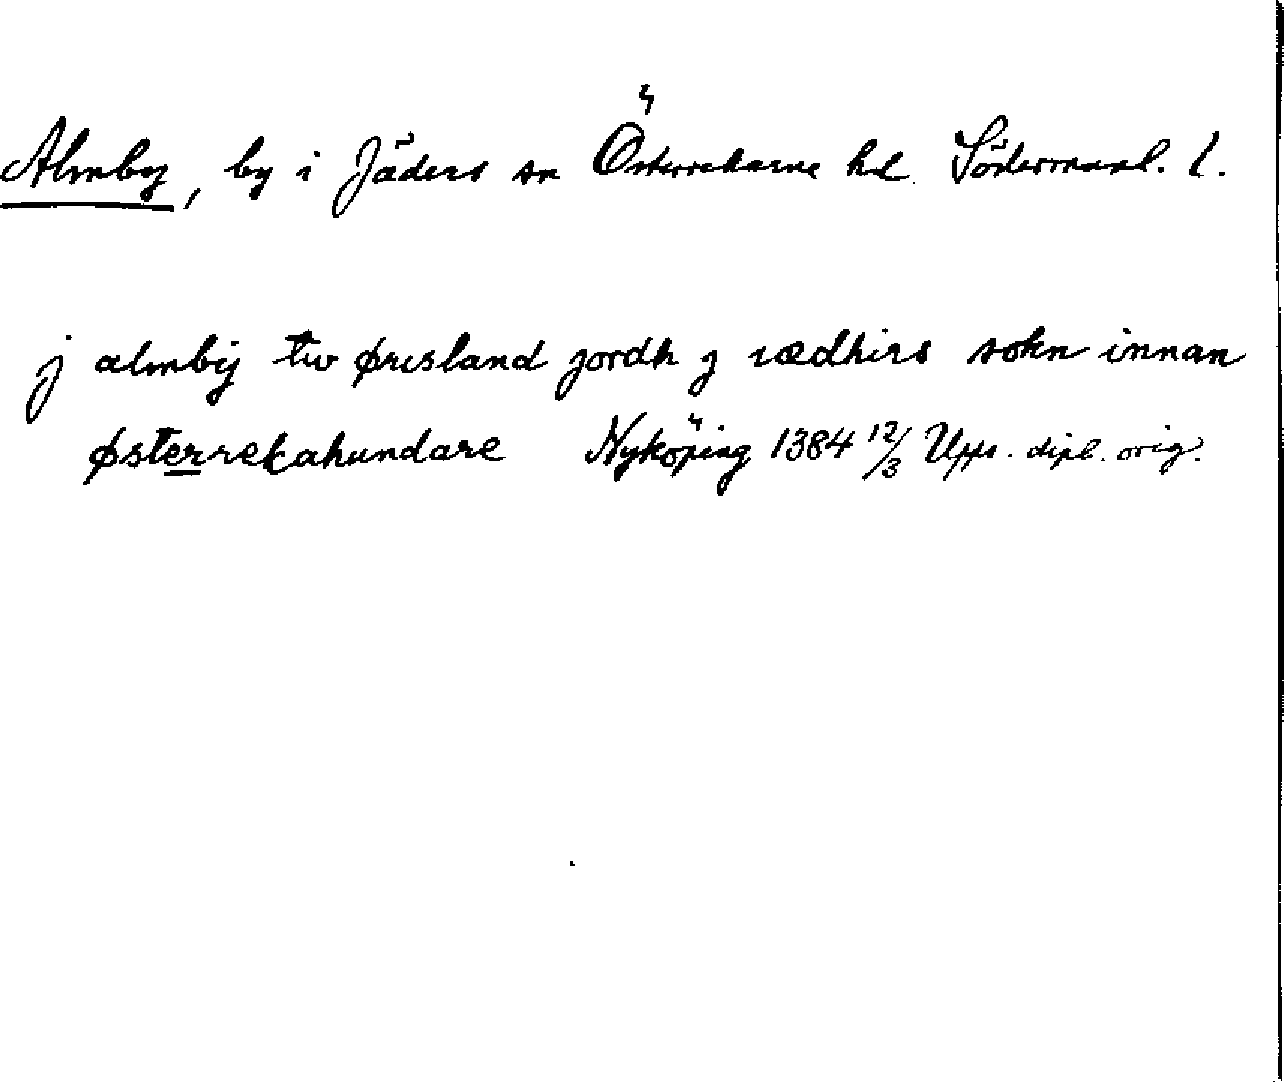 Almby, by i Jäders sn Österrekarne hd. Södermanl. l.
j almbij tw øresland jordh j iædhirs sokn innan
østerrekahundare Nyköping 1384 12/3 Upps. dipl. orig.